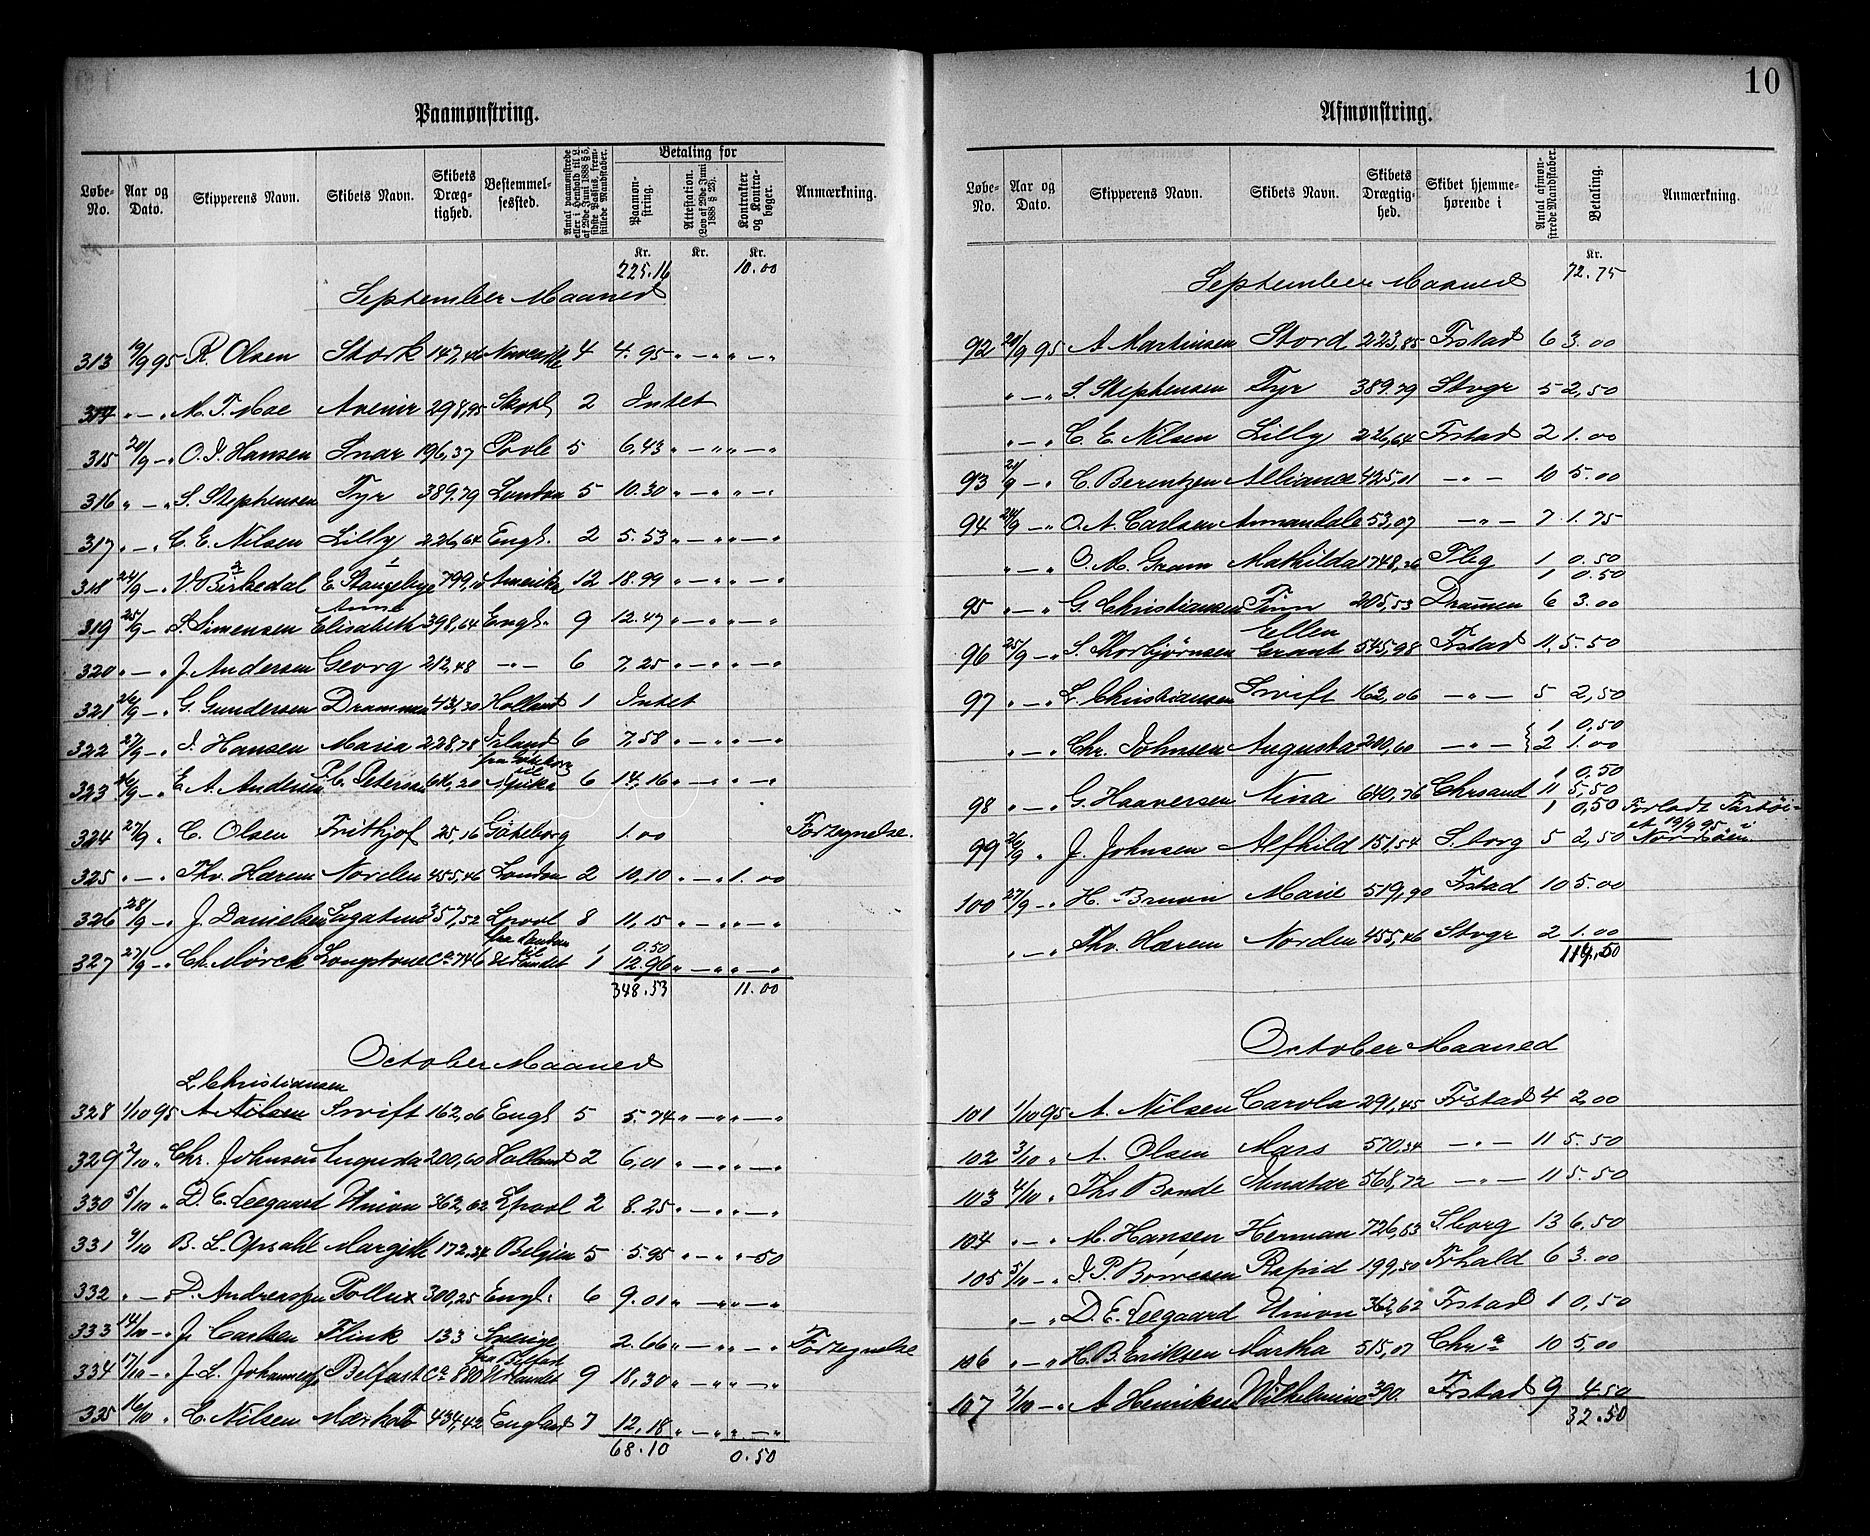 10
Paamønstring.
Løbe-No. Aar og Dato. Skippers Navn. Skibets Navn. Skibets Dræg-tighed. Bestemmel-sessted. Betaling for Paamøn-string. Attestation. (Lov af 29de Juni 1888 § 23). Kontrakter og Kontra-bøger. Anmærkning.
Kr. Kr. Kr.
225.16 10.00
September Maaned
313 19/9 95 R. Olsen Stork 147,46 4 4.95 " — " " — "
314 " — " M. T. Moe Avenir 298,95 2 Intet
315 20/9 — " O. J. Hansen Snar 196,37 Poole 5 6,43 " — " " — "
316 " — " S. Stephensen Tyr 389.79 London 5 10.30 " — " " — "
317 " — " C. E. Nilsen Lilly 226,64 Engl. 2 5.53 " — " " — "
318 24/9 — " V. Birkedal E. Stangebye 799,10 Amerika 12 18.99 " — " " — "
319 25/9 — S. Simensen Anne Elisabeth 398,64 Engl. 9 12.47 " — " " — "
320 " — " J. Andersen Georg 212,48 — " — 6 7,25 " — " " — "
321 26/9 — " G. Gundersen Drammen 431,30 Holland 1 Intet
322 27/9 — " J. Hansen Maria 228,78 Irland 6 7,58 " — " " — "
323 26/9 — " E. A. Andersen P. C. Petersen 616,20 fra Göteborg til Afrika 6 14,16 " — " " — "
324 27/9 " C. Olsen Frithjof 25,16 Göteborg 1.00 Forsegnelse.
325 " — " Thv. Hærem Norden 455,46 London 2 10,10 " — " 1.00
326 28/9 — " J. Danielsen Sagatun 357,52 Lpool 8 11,15 " — " " — "
327 27/9 — " Ch. Mörck Longstone Ca 746 fra London til Udlandet 1 0.50 12.96 " — " " — "
348.53 11.00
October Maaned
L. Christiansen
328 1/10 95 A. Nilsen Swift 162,06 Engl 5 5.74 " — " " — "
329 2/10 " Chr. Johnsen Augusta 200,60 Holland 2 6,01 " — " " — "
330 5/10 " D. E. Leegaard Union 362,62 Lpool 2 8.25 " — " " — "
331 9/10 B. L. Opsahl Margith 172.34 Belgien 5 5.95 " — " " — 50
332 " — " P. Andreassen Pollux 300,25 Engl. 6 9.01 " — " " — "
333 14/10 — " J. Carlsen Flink 133 Sverige 2.66 " — " " — " Forsegnelse
334 17/10 — " J. L. Johannesen Belfast Ca 880 fra Belfast Udlandet 9 18,30 " — " " — "
335 16/10 " C. Nilsen Mærkat 434,42 England 7 12,18 " — " " — "
68.10 0.50
Afmønstring.
Løbe-No. Aar og Dato. Skippers Navn. Skibets Navn. Skibets Drægtig-hed. Skibet hjemme-hørende i Antal afmøn-strede Mandskaber. Betaling. Anmærkning.
Kr.
72.75
September Maaned
92 20/9 95 A. Martinsen Stord 223,85 Frstad 6 3.00
" — " S. Stephensen Tyr 389.79 Stvgr 5 2,50
" — " C. E. Nilsen Lilly 226,64 Frstad 2 1.00
93 21/9 — " C. Berentzen Alliance 425,01 — " — 10 5.00
94 24/9 — " O. A. Carlsen Annandale 53,07 — " — 7 1.75
" — " O. M. Gram Mathilda 1748,26 Fleg 1 0.50
1 0.50
95 " — " G. Christiansen Finn 205,53 Drammen 6 3.00
96 25/9 — " S. Thorbjørnsen Ellen Grant 545,98 Frstad 11 5.50
97 " — " L. Christiansen Swift 162,06 — " — 5 2,50
" — " Chr. Johnsen Augusta 200,60 — " — { 1 0,50
2 1.00
1 0,50
98 " — " G. Haaversen Nina 640,76 Chrsand 11 5,50
1 0,50 Forladt Fartøi-et 19/9 95 i Nordsøen
99 26/9 " J. Johnsen Alfhild 151,54 S.borg 5 2,50
100 27/9 — " H. Bruun Marie 519,90 Frstad 10 5.00
" — " Thv. Hærem Norden 455,46 Stvgr 2 1.00
114,50
October Maaned
101 1/10 95 A. Nilsen Carola 291,45 Frstad 4 2,00
102 3/10 " A. Olsen Mars 570,34 — " — 11 5.50
103 4/10 " Ths Bonde Senator 568,72 — " — 11 5.50
104 " — " M. Hansen Herman 726,53 S.borg 13 6,50
105 5/10 — " J. P. Borresen Rapid 199,50 Frhald 6 3.00
" — " D. E. Leegaard Union 362,62 Frstad 1 0,50
106 " — " H. B. Eriksen Martha 515,07 Chra 10 5,00
107 7/10 — " A. Henriksen Wilhelmine 390. Frstad 9 4.50
32.50